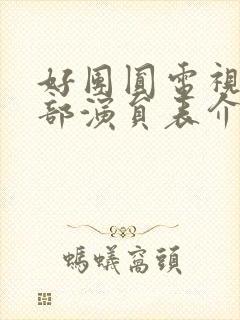 好团圆電視
部演員表介
螞蟻窩頭